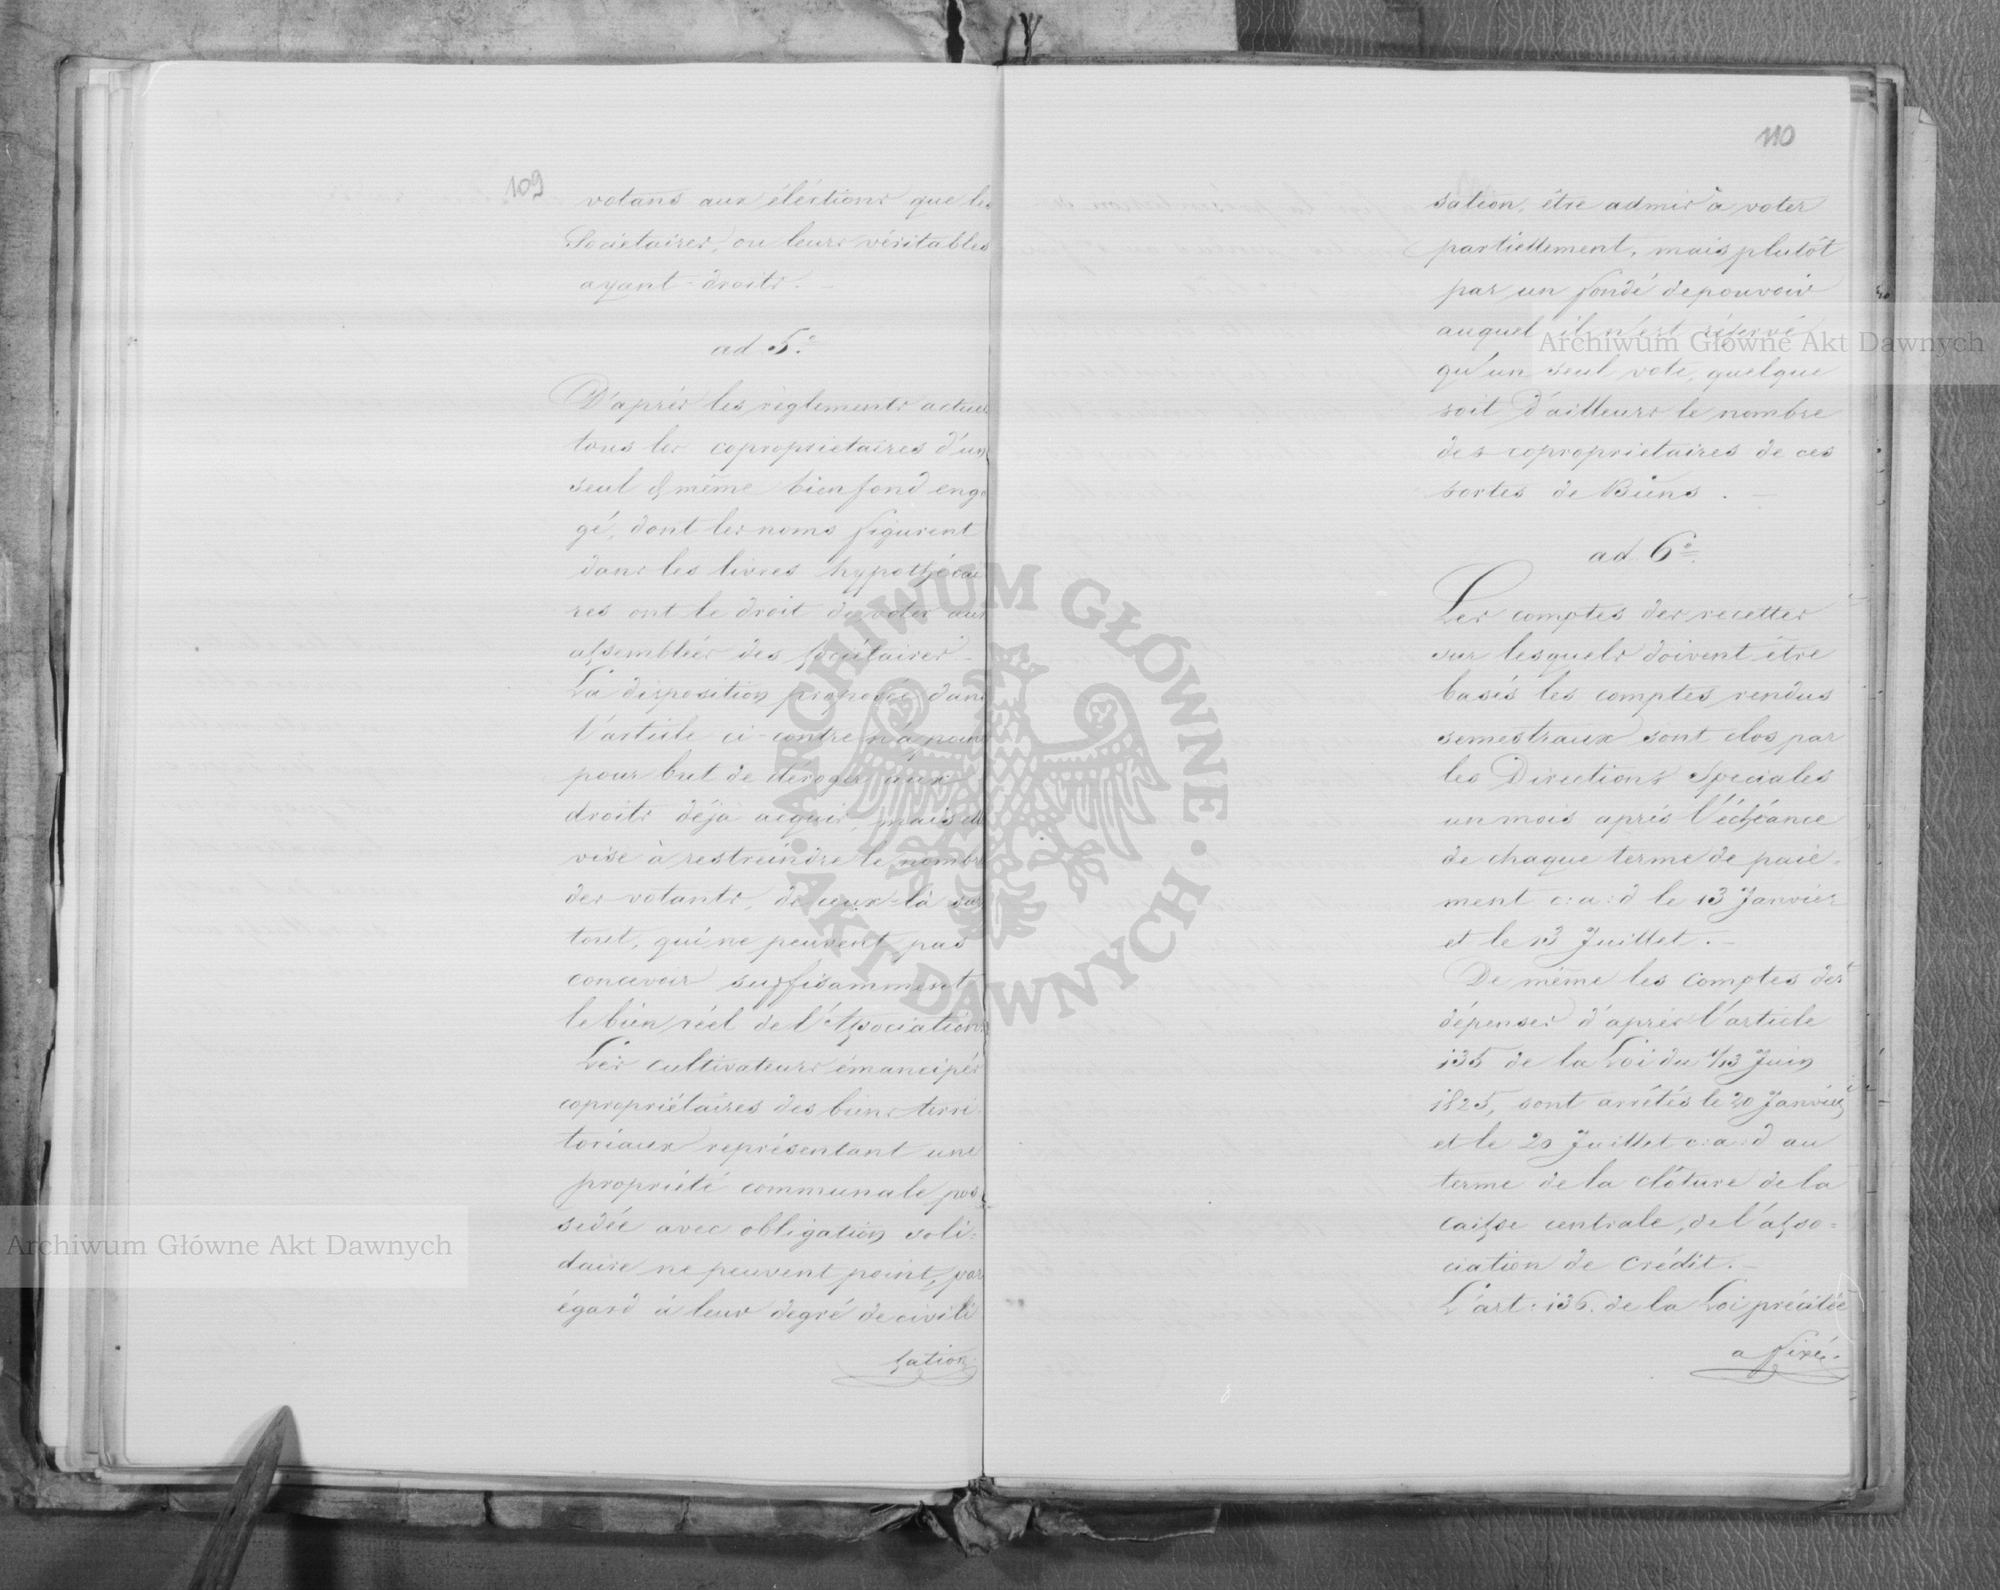 109
votans aux éléctions que les
Sociétaires, ou leurs véritables
ayant-droits. –
ad 5.°
D'après les règlements actuels
tous les copropriétaires d'un
seul & même bienfond enga
gé, dont les noms figurent
dans les livres hypothécai
res ont le droit de voter aux
assemblées des sociétaires –
La disposition proposée dans
l'article ci-contre n'a point
pour but de déroger aux
droits déjà acquis, mais elle
vise à restreindre le nombre
des votants, de ceux-là sur
tout, qui ne peuvent pas
concevoir suffisamment
le bien réel de l'Association
Les cultivateurs émancipés
copropriétaires des biens terri
toriaux représentant une
propriété communale pos
sédée avec obligation soli=
daire ne peuvent point, par
égard à leur degré de civili
sation
110
sation, être admis à voter
partiellement, mais plutôt
par un fondé de pouvoir
auquel il n'est réservé
qu'un seul vote, quelque
soit d'ailleurs le nombre
des copropriétaires de ces
sortes de Biens. –
ad 6.°
Les comptes des recettes
sur lesquels doivent être
basés les comptes rendus
semestraux sont clos par
les Directions Speciales
un mois après l'échéance
de chaque terme de paie=
ment c:a:d le 13 Janvier
et le 13 Juillet. –
De même les comptes des
dépenses d'après l'article
135 de la Loi du 1/13 Juin
1825, sont arrêtés le 20 Janvier
et le 20 Juillet c:a:d au
terme de la clôture de la
caisse centrale, de l'asso=
ciation de Crédit. –
L'art: 136. de la Loi précitée
a fixé.
ARCHIWUM GŁÓWNE AKT DAWNYCH
Archiwum Główne Akt Dawnych
Archiwum Główne Akt Dawnych